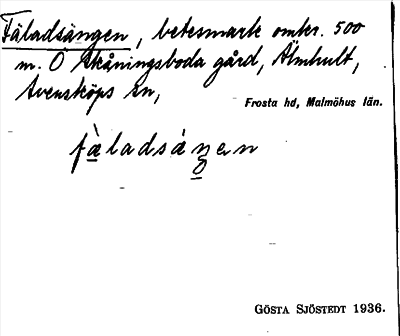 Fäladsängen, betesmark omkr. 500
m. O Skåningsboda gård, Älmhult,
Svensköps sn,
Frosta hd, Malmöhus län.
fàladsáŋen
GÖSTA SJÖSTEDT 1936.